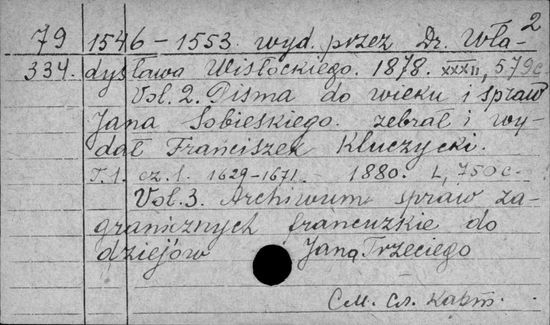 2
79 1546-1553. wyd. przez Dr. Wła-
334. dysława Wisłockiego. 1878. XXXII, 579c.
Vol. 2. Pisma do wieku i spraw
Jana Sobieskiego. zebrał i wy-
dał Franciszek Kluczycki.
T.1. cz.1. 1629-1671. 1880. L, 750c.
Vol. 3. Archiwum spraw za-
granicznych francuzkie do
dziejów Jana Trzeciego
См. сл. карт.